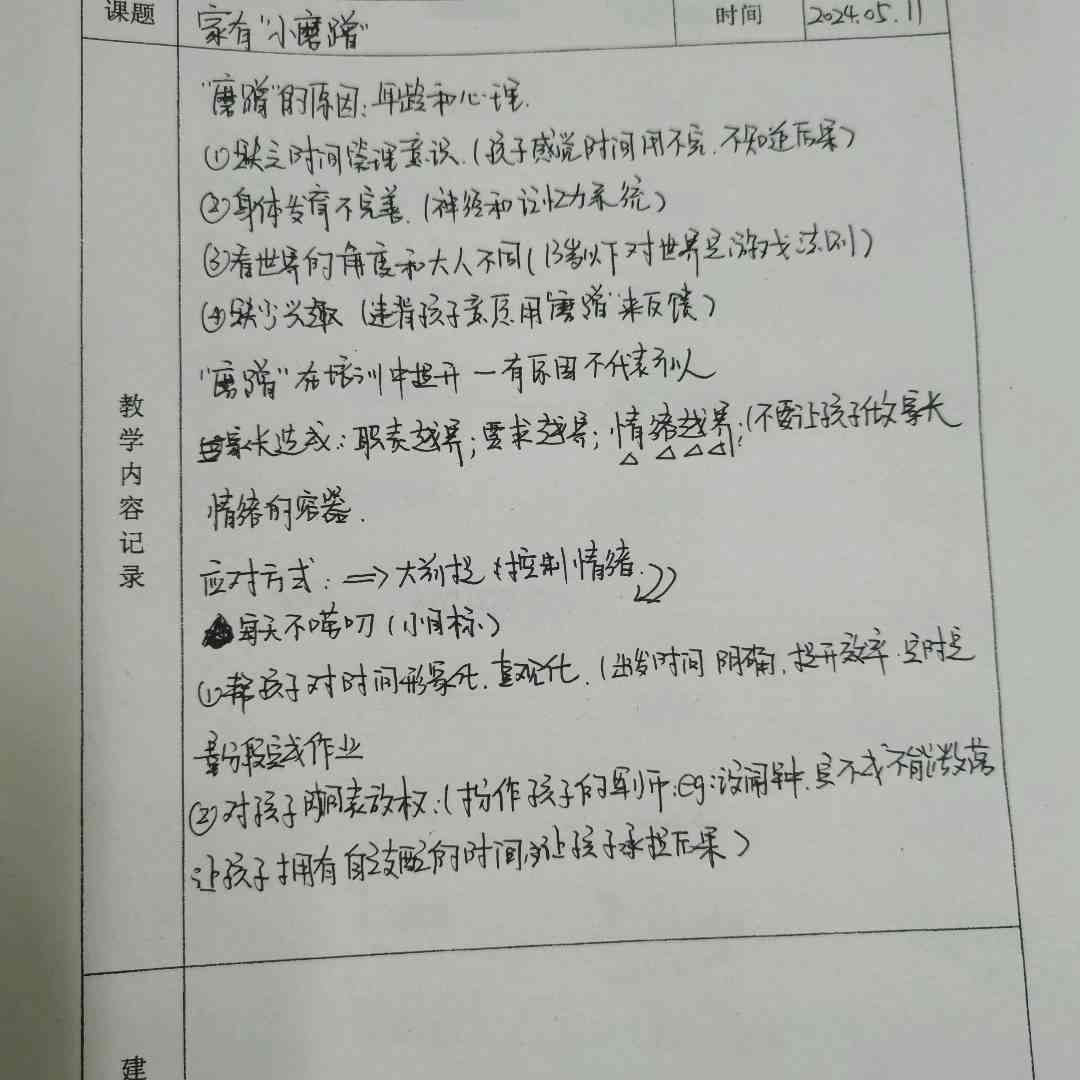 课题 家有“小磨蹭” 时间 2024.05.11
“磨蹭”的原因：年龄和心理.
①缺乏时间管理意识.(孩子感觉时间用不完.不知道后果)
②身体发育不完善.(神经和记忆力系统)
③看世界的角度和大人不同(13岁以下对世界是游戏法则)
④缺少兴趣 (违背孩子意愿用“磨蹭”来反馈)
“磨蹭”在培训中提升 一有原因不代表
家长造成：职责越界；要求越界；情绪越界；(不要让孩子做家长
情绪的容器.
应对方式：=>大前提《控制情绪.》
每天不唠叨(小目标)
①帮孩子对时间形象化.直观化.(出发时间 明确.提升效率.定时定
量分段完成作业
②对孩子 放权：(扮作孩子的军师.eg:设闹钟.完不成不能数落
让孩子拥有自支配的时间,让孩子承担后果)
教学内容记录
建